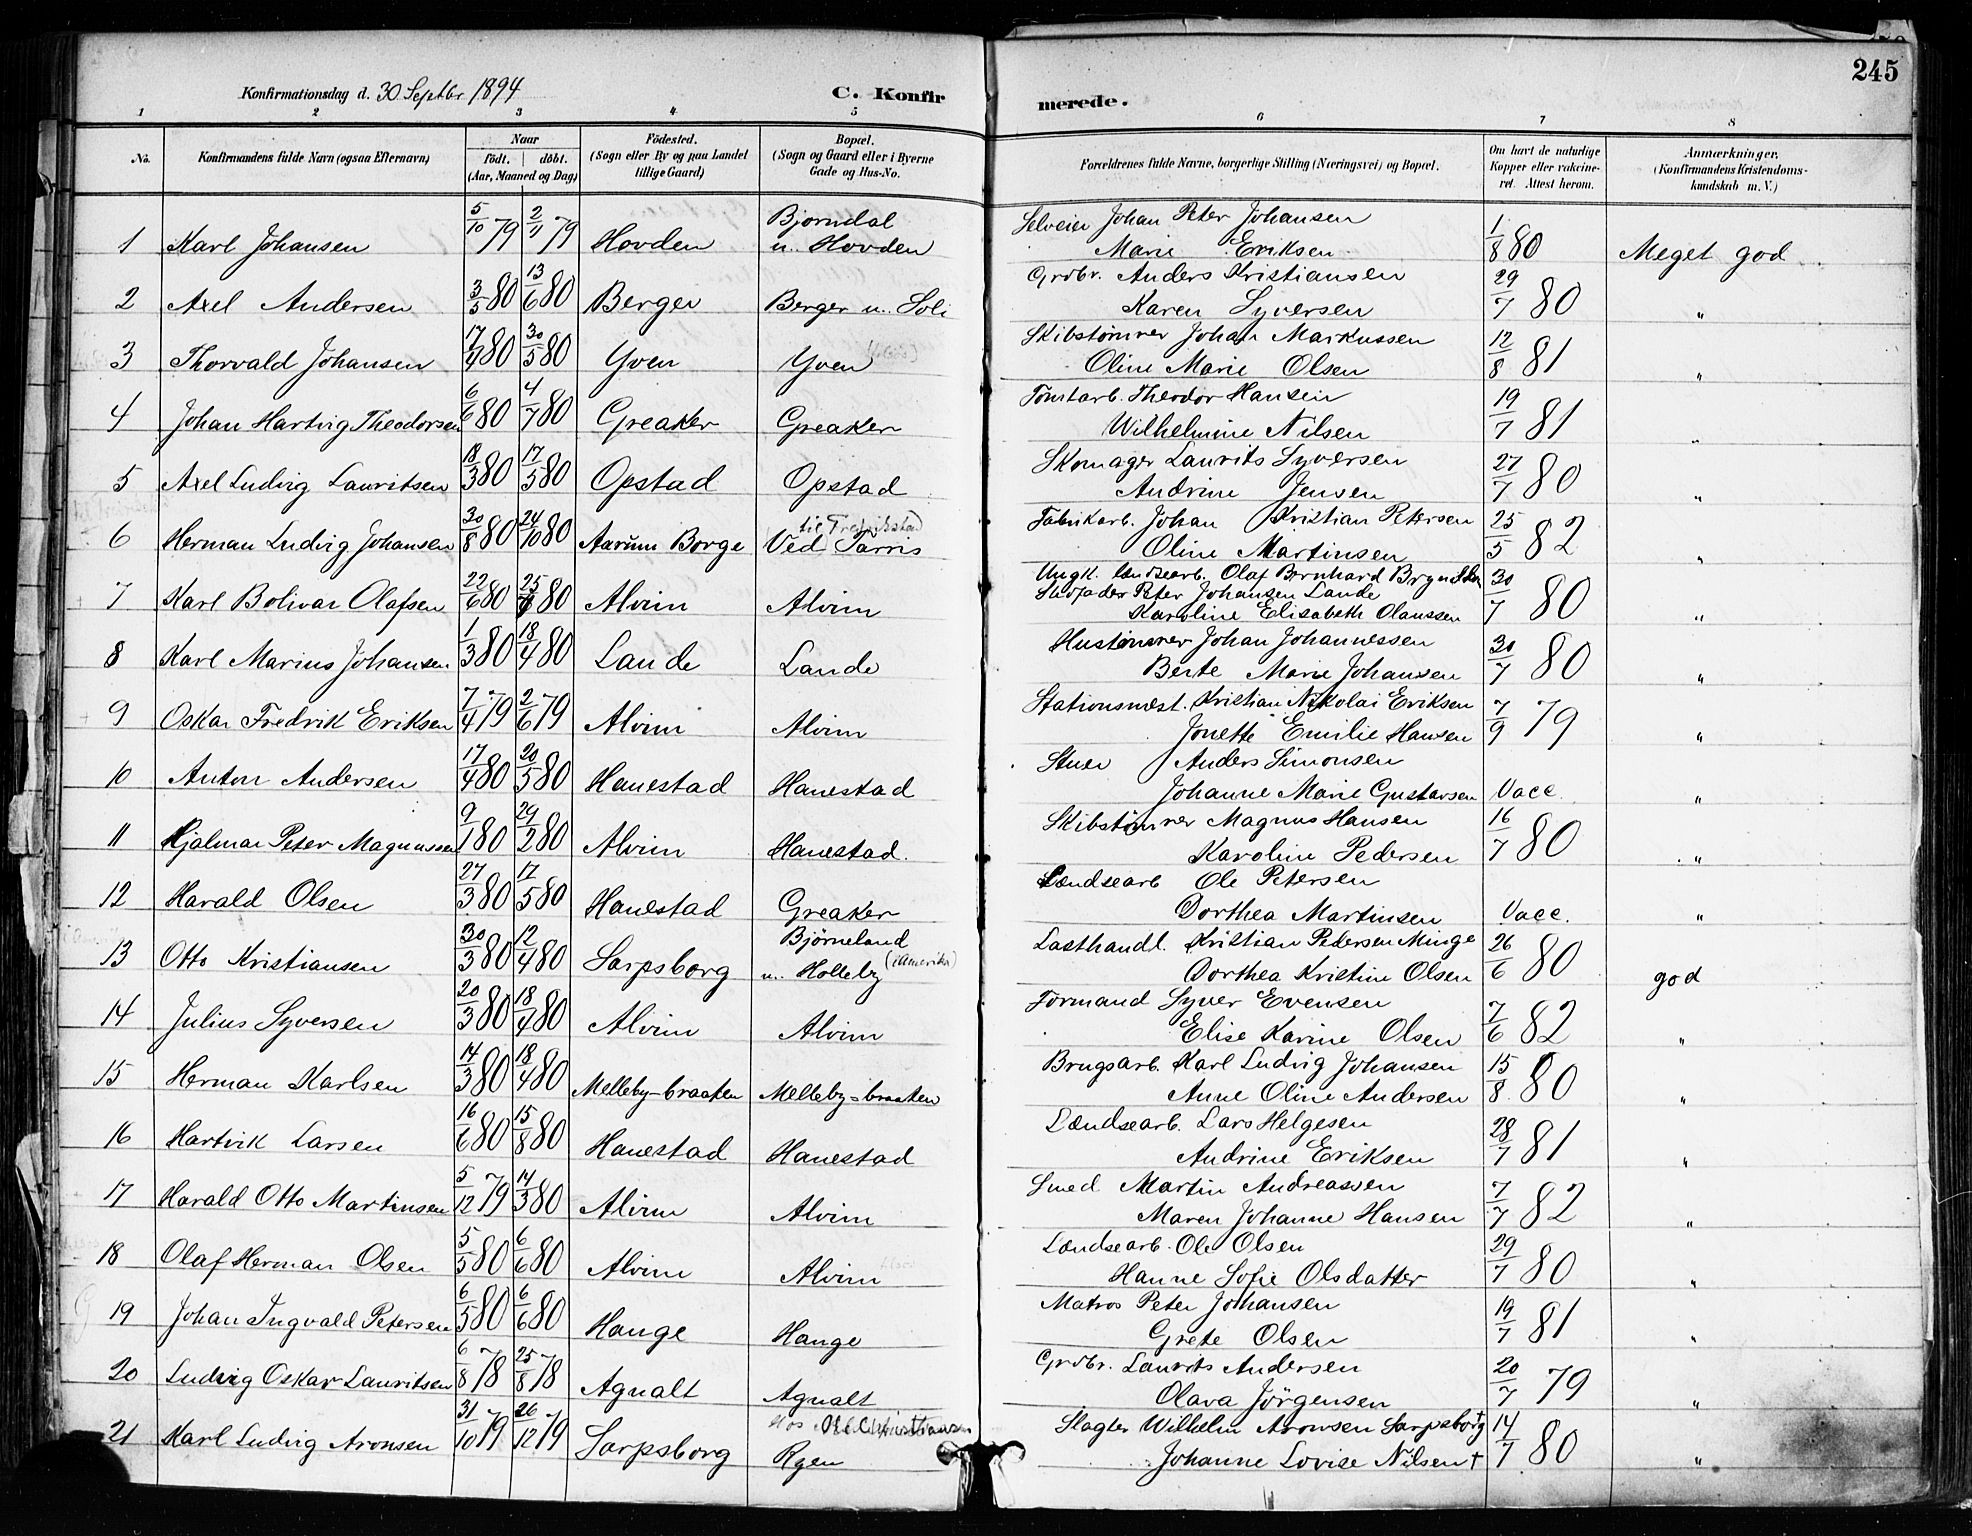 245
Konfirmationsdag d. 30 Septbr 1894
C. Konfirmerede.
1 2 3 4 5 6 7 8
No.
Konfirmandens fulde Navn (ogsaa Efternavn)
Naar
födt. | döbt.
(Aar, Maaned og Dag)
Födested.
(Sogn eller By og paa Landet tillige Gaard)
Bopæl.
(Sogn og Gaard eller i Byerne Gade og Hus-No.
Forældrenes fulde Navne, borgerlige Stilling (Næringsvei) og Bopæl.
Om havt de naturlige Kopper eller vakcineret. Attest herom.
Anmærkninger,
(Konfirmandens Kristendomskundskab m. V.)
1 Karl Johansen 5/10 79 2/11 79 Hovden Bjørndal u. Hovden Selveier Johan Peter Johansen
Marie Eriksen 1/8 80 Meget god
2 Axel Andersen 3/5 80 13/6 80 Berger Berger u. Soli Grdbr. Anders Kristiansen
Karen Syversen 29/7 80 "
3 Thorvald Johansen 17/4 80 30/5 80 Yven Yven Skibstømrer Johan Markussen
Oline Marie Olsen 12/8 81 "
4 Johan Hartvig Theodorsen 6/6 80 4/7 80 Greaker Greaker Tomtarb. Theodor Hansen
Wilhelmine Nilsen 19/7 81 "
5 Axel Ludvig Lauritsen 18/3 80 17/5 80 Opstad Opstad Skomager Laurits Syversen
Andrine Jensen 27/7 80 "
6 Herman Ludvig Johansen 30/8 80 24/10 80 Aarum Borge til Fredrikstad
Ved Tarris Fabrikarb. Johan Kristian Petersen
Oline Martinsen 25/5 82 "
7 Karl Bolivar Olafsen 22/6 80 25/7 80 Alvim Alvim Ungk. Lændsearb. Olaf Bernhard
Stedfader Peter Johansen Lande
Karoline Elisabeth Olaussen 30/7 80 "
8 Karl Marius Johansen 1/3 80 18/4 80 Lande Lande Hustømrer Johan Johannessen
Berte Marie Johansen 30/7 80 "
9 Oskar Fredrik Eriksen 7/4 79 2/6 79 Alvim Alvim Stationsmest. Kristian Nikolai Eriksen
Jonette Emilie Hansen 7/9 79 "
10 Anton Andersen 17/4 80 20/5 80 Hanestad Hanestad Stuer Anders Simonsen
Johanne Marie Gustavsen Vacc. "
11 Hjalmar Peter Magnussen 9/1 80 29/2 80 Alvim Hanestad. Skibstømrer Magnus Hansen
Karoline Pedersen 16/7 80 "
12 Harald Olsen 27/3 80 17/5 80 Hanestad Greaker Lændsearb Ole Petersen
Dorthea Martinsen Vacc. "
13 Otto Kristiansen 30/3 80 12/4 80 Sarpsborg Björneland
u. Holleby (i Amerika) Lasthandl. Kristian Pedersen Minge
Dorthea Kristine Olsen 26/6 80 god
14 Julius Syversen 20/3 80 18/4 80 Alvim Alvim Formand Syver Evensen
Elise Karine Olsen 7/6 82 "
15 Herman Karlsen 14/3 80 18/4 80 Melleby-braaten Melleby-braaten Brugsarb. Karl Ludvig Johansen
Anne Oline Andersen 15/8 80 "
16 Hartvik Larsen 16/6 80 15/8 80 Hanestad Hanestad Lændsearb. Lars Helgesen
Andrine Eriksen 28/7 81 "
17 Harald Otto Martinsen 5/12 79 14/3 80 Alvim Alvim Smed Martin Andreassen
Maren Johanne Hansen 7/7 82 "
18 Olaf Herman Olsen 5/5 80 6/6 80 Alvim Alvim Lændsearb. Ole Olsen
Hanne Sofie Olsdatter 29/7 80 "
19 Johan Ingvald Petersen 6/5 80 6/6 80 Hauge Hauge Matros Peter Johansen
Grete Olsen 19/7 81 "
20 Ludvig Oskar Lauritsen 6/8 78 25/8 78 Agnalt Agnalt Grdbr. Laurits Andersen
Olava Jörgensen 20/7 79 "
21 Karl Ludvig Aronsen 31/10 79 26/12 79 Sarpsborg Hos Ole Christiansen
Rgen Slagter Wilhelm Aronsen Sarpsborg
Johanne Lovise Nilsen † 14/7 80 "